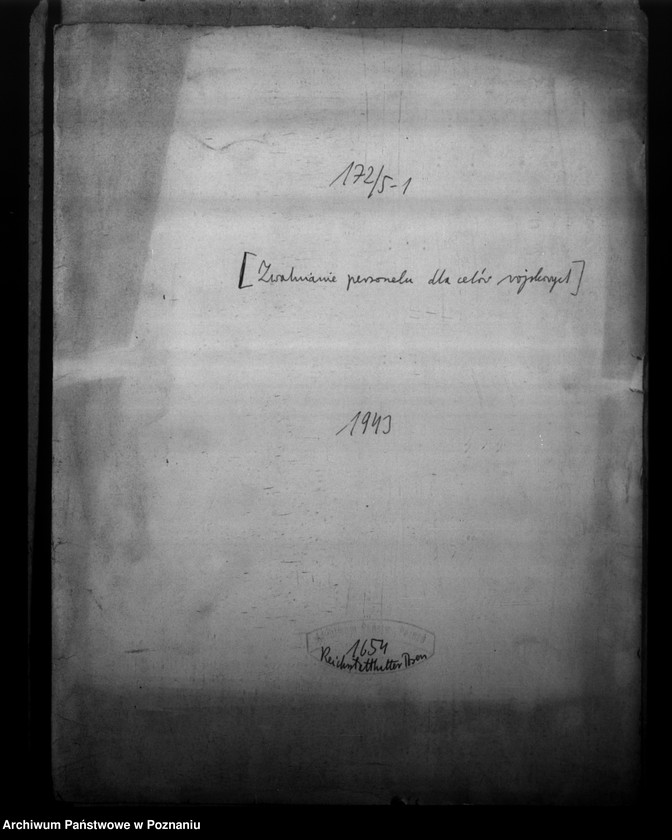 172/5-1
[Zwalnianie personelu dla celów wojskowych]
1943
1654
Reichsstatthalter Posen
Archiwum Państwowe w Poznaniu